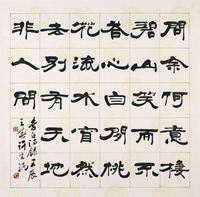 問余何意棲
碧山笑而不
答心自閑桃
花流水窅然
去別有天地
非人間
李白詩錄壬辰